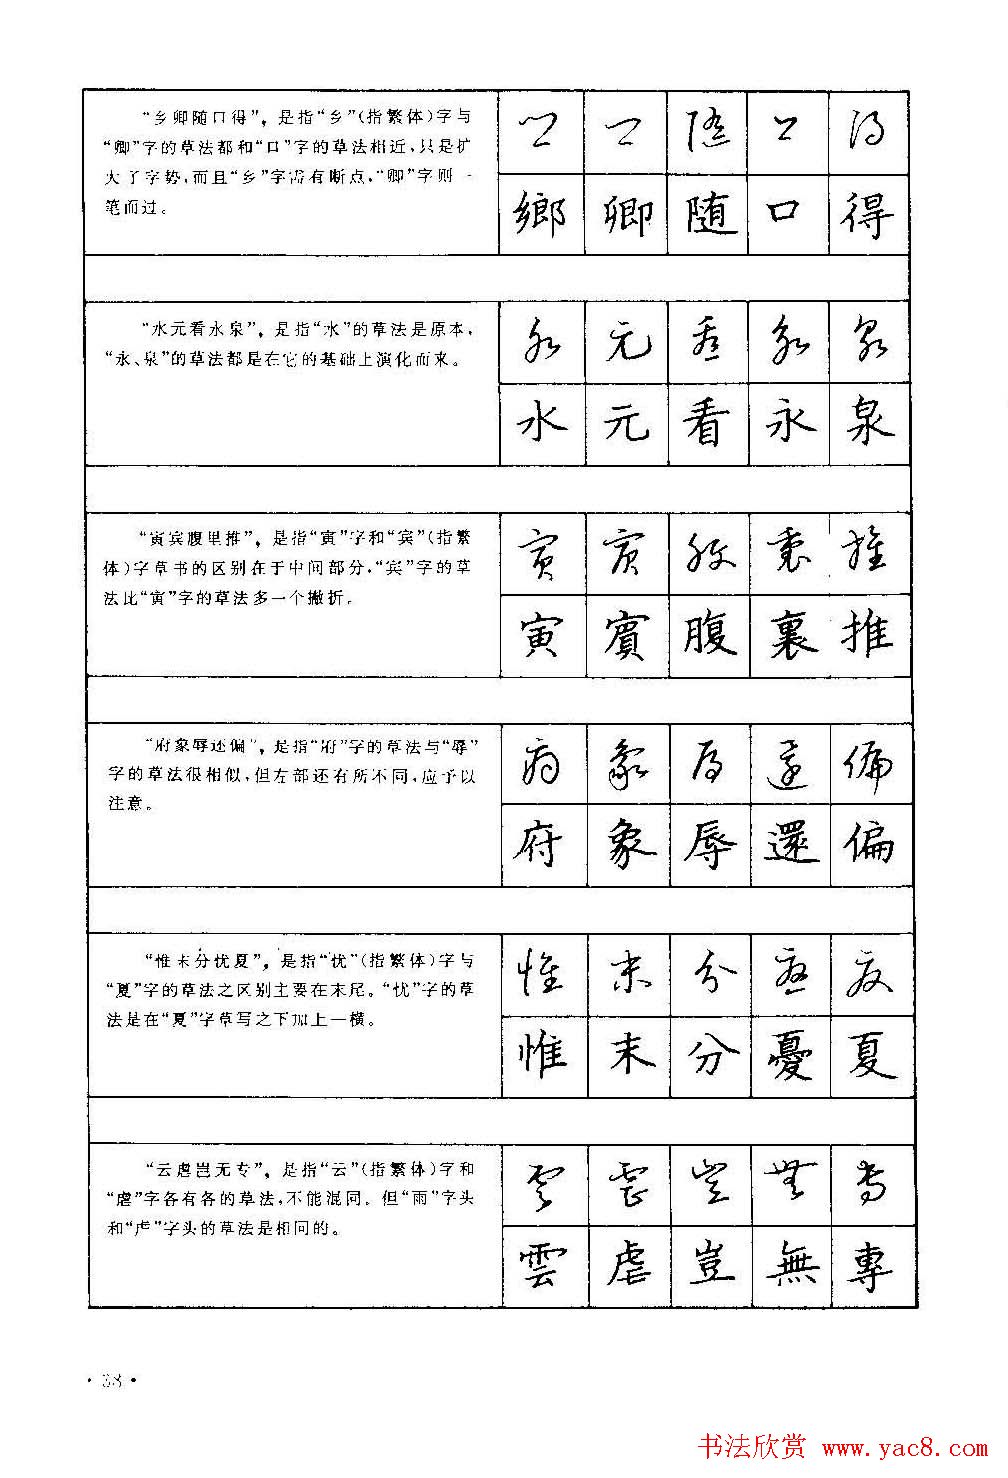 “乡卿随口得”，是指“乡”(指繁体)字与
“卿”字的草法都和“口”字的草法相近，只是扩
大了字势，而且“乡”字需有断点，“卿”字则一
笔而过。
鄉 卿 随 口 得
鄉 卿 随 口 得
“水元看永泉”，是指“水”的草法是原本，
“永、泉”的草法都是在它的基础上演化而来。
水 元 看 永 泉
水 元 看 永 泉
“寅宾腹里推”，是指“寅”字和“宾”(指繁
体)字草书的区别在于中间部分，“宾”字的草
法比“寅”字的草法多一个撇折。
寅 賓 腹 裏 推
寅 賓 腹 裏 推
“府象辱还偏”，是指“府”字的草法与“辱”
字的草法很相似，但左部还有所不同，应予以
注意。
府 象 辱 還 偏
府 象 辱 還 偏
“惟末分忧夏”，是指“忧”(指繁体)字与
“夏”字的草法之区别主要在末尾。“忧”字的草
法是在“夏”字草写之下加上一横。
惟 末 分 憂 夏
惟 末 分 憂 夏
“云虐岂无专”，是指“云”(指繁体)字和
“虐”字各有各的草法，不能混同。但“雨”字头
和“虍”字头的草法是相同的。
雲 虐 豈 無 專
雲 虐 豈 無 專
·38·
书法欣赏 www.yac8.com